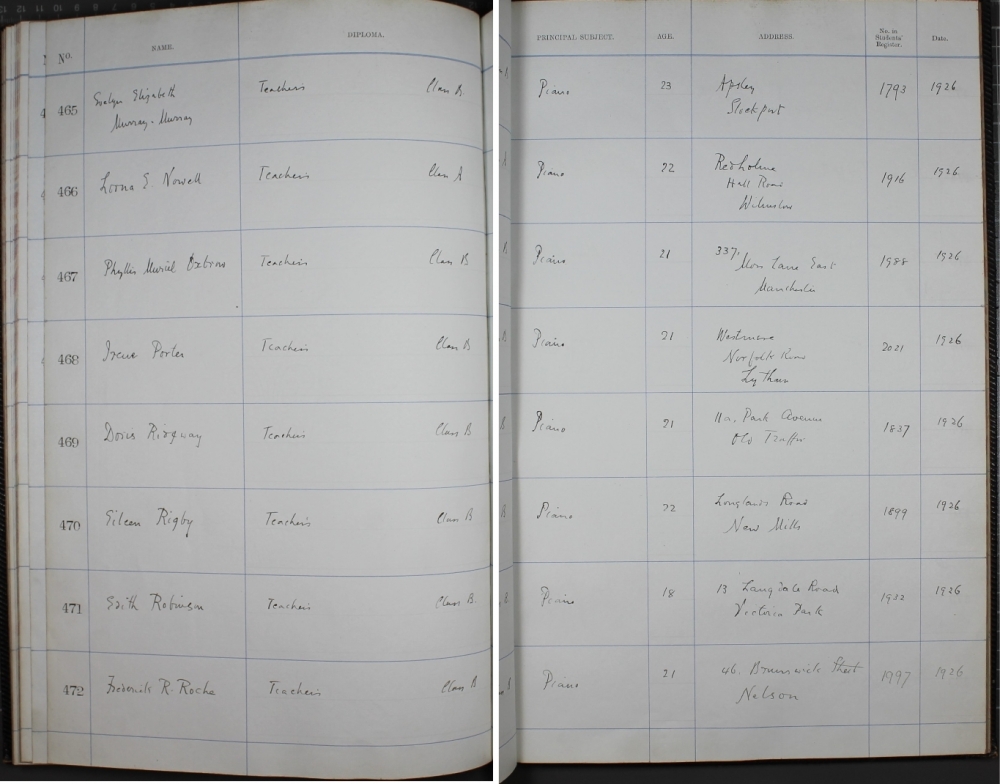 No. NAME. DIPLOMA. PRINCIPAL SUBJECT. AGE. ADDRESS. No. in Students' Register. Date.
465 Evelyn Elizabeth Teacher's Class B Piano 23 Stockport 1793 1926
Murray-Murray
466 Lorna E. Nowell Teacher's Class A Piano 22 Redholme 1916 1926
Hall Road
Wilmslow
467 Phyllis Muriel Oxbrow Teacher's Class B Piano 21 337, 1988 1926
Moss Lane East
Manchester
468 Irene Porter Teacher's Class B Piano 21 Westmere 2021 1926
Norfolk Road
Lytham
469 Doris Ridgway Teacher's Class B Piano 21 11a, Park Avenue 1837 1926
Old Trafford
470 Eileen Rigby Teacher's Class B Piano 22 Longlands Road 1899 1926
New Mills
471 Edith Robinson Teacher's Class B. Piano 18 13 Langdale Road 1932 1926
Victoria Park
472 Frederick R. Roche Teacher's Class B Piano 21 46. Brunswick Street 1997 1926
Nelson